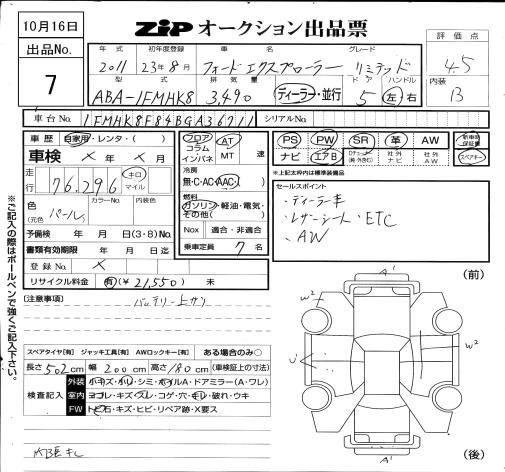 10月16日
ZIP オークション出品票
出品No.
7
年式 初年度登録 車名 グレード
2011 23年8月 フォードエクスプローラー リミテッド
評価点
4.5
型式 排気量 ドア ハンドル
ABA-1FMHK8 3,490 ディーラー・並行 5 左・右
内装
B
車台No. 1FMHK8F84BGA36711 シリアルNo.
車歴 自家用・レンタ・( )
車検 × 年 × 月
走行 76,296 キロ マイル
色 (元色) パール カラーNo. 内装色
予備検 年 月 日(3・8)No.
書類有効期限 年 月 日迄
登録No. ×
リサイクル料金 有(¥21,550) 未
フロア コラム インパネ AT MT 速
冷房 無・C・AC・AAC
燃料 ガソリン・軽油・電気・その他( )
Nox 適合・非適合
乗車定員 7 名
PS PW SR 革 AW 新車時保証書
ナビ エアB 社外ナビ 社外AW スペアキー
※上記太枠内は標準装備品
セールスポイント
・ディーラー車
・レザーシート ・ETC
・AW
※ご記入の際はボールペンで強くご記入下さい。
(注意事項)
バッテリー上がり
スペアタイヤ[有] ジャッキ工具[有] AWロックキー[有] ある場合のみ○
長さ 502 cm 幅 200 cm 高さ 180 cm (車検証上の寸法)
検査記入
外装 小キズ・小凹・シミ・ホイルA・ドアミラー(A・ワレ)
室内 ヨゴレ・キズ・スレ・コゲ・穴・キレ・破れ・ウキ
FW トビ石・キズ・ヒビ・リペア跡・X要ス
(前)
A'
W2
W2
U'
A'
(後)